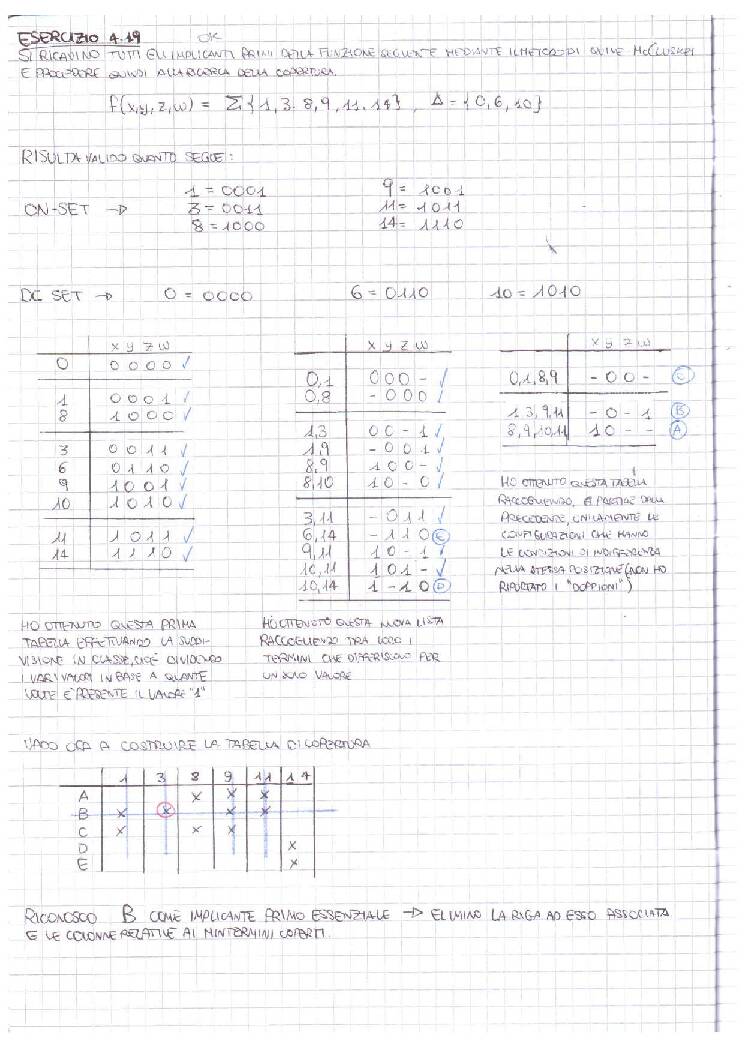 ESERCIZIO 4.19 OK
SI RICAVINO TUTTI GLI IMPLICANTI PRIMI DELLA FUNZIONE SEGUENTE MEDIANTE IL METODO DI QUINE McCLUSKEY
E PROCEDERE QUINDI ALLA RICERCA DELLA COPERTURA.
f(x,y,z,w) = Σ{1,3.8,9,11.14}, Δ={0,6,10}
RISULTA VALIDO QUANTO SEGUE:
1 = 0001 9 = 1001
ON-SET → 3 = 0011 11 = 1011
8 = 1000 14 = 1110
DC SET → 0 = 0000 6 = 0110 10 = 1010
x y z w
0 0000 ✓
1 0001 ✓
8 1000 ✓
3 0011 ✓
6 0110 ✓
9 1001 ✓
10 1010 ✓
11 1011 ✓
14 1110 ✓
x y z w
0,1 000- ✓
0,8 -000 ✓
1,3 00-1 ✓
1,9 -001 ✓
8,9 100- ✓
8,10 10-0 ✓
3,11 -011 ✓
6,14 -110 E
9,11 10-1 ✓
10,11 101- ✓
10,14 1-10 D
x y z w
0,1,8,9 -00- C
1.3,9,11 -0-1 B
8,9,10,11 10-- A
HO OTTENUTO QUESTA TABELLA
RACCOGLIENDO, A PARTIRE DALLA
PRECEDENTE, UNICAMENTE LE
CONFIGURAZIONI CHE HANNO
LE CONDIZIONI DI INDIFFERENZA
NELLA STESSA POSIZIONE (NON HO
RIPORTATO I "DOPPIONI")
HO OTTENUTO QUESTA PRIMA
TABELLA EFFETTUANDO LA SUDDI-
VISIONE IN CLASSE, CIOÈ DIVIDENDO
I VARI VALORI IN BASE A QUANTE
VOLTE È PRESENTE IL VALORE "1"
HO OTTENUTO QUESTA NUOVA LISTA
RACCOGLIENDO TRA LORO I
TERMINI CHE DIFFERISCONO PER
UN SOLO VALORE
VADO ORA A COSTRUIRE LA TABELLA DI COPERTURA
1 3 8 9 11 14
A x x x
B x x x x
C x x x
D x
E x
RICONOSCO B COME IMPLICANTE PRIMO ESSENZIALE → ELIMINO LA RIGA AD ESSO ASSOCIATA
E LE COLONNE RELATIVE AI MINTERMINI COPERTI.